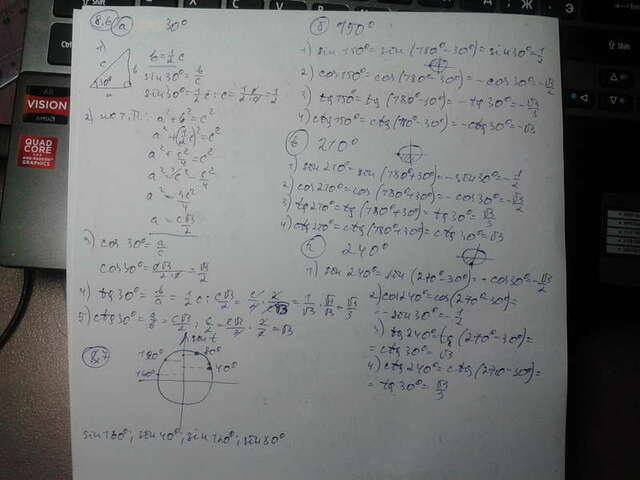 8.6 а 30°
1) c b 30° a
b = 1/2 c
sin 30° = b/c
sin 30° = 1/2 c : c = 1/2
2) по т.П.: a² + b² = c²
a² + (1/2 c)² = c²
a² + c²/4 = c²
a² = c² - c²/4
a² = 3c²/4
a = c√3/2
3) cos 30° = a/c
cos 30° = c√3/2·c = √3/2
4) tg 30° = b/a = 1/2 c : c√3/2 = c/2 · 2/c√3 = 1/√3 · √3/√3 = √3/3
5) ctg 30° = a/b = c√3/2 : c/2 = c√3/2 · 2/c = √3
8.7
sin t
120° 80°
160° 40°
sin 160°; sin 40°; sin 120°; sin 80°
б 150°
1) sin 150° = sin (180° - 30°) = sin 30° = 1/2
2) cos 150° = cos (180° - 30°) = - cos 30° = - √3/2
3) tg 150° = tg (180° - 30°) = - tg 30° = - √3/3
4) ctg 150° = ctg (180° - 30°) = - ctg 30° = - √3
в 210°
1) sin 210° = sin (180° + 30°) = - sin 30° = - 1/2
2) cos 210° = cos (180° + 30°) = - cos 30° = - √3/2
3) tg 210° = tg (180° + 30°) = tg 30° = √3/3
4) ctg 210° = ctg (180° + 30°) = ctg 30° = √3
г 240°
1) sin 240° = sin (270° - 30°) = - cos 30° = - √3/2
2) cos 240° = cos (270° - 30°) =
= - sin 30° = - 1/2
3) tg 240° = tg (270° - 30°) =
= ctg 30° = √3
4) ctg 240° = ctg (270° - 30°) =
= tg 30° = √3/3
VISION
AMD
QUAD
CORE